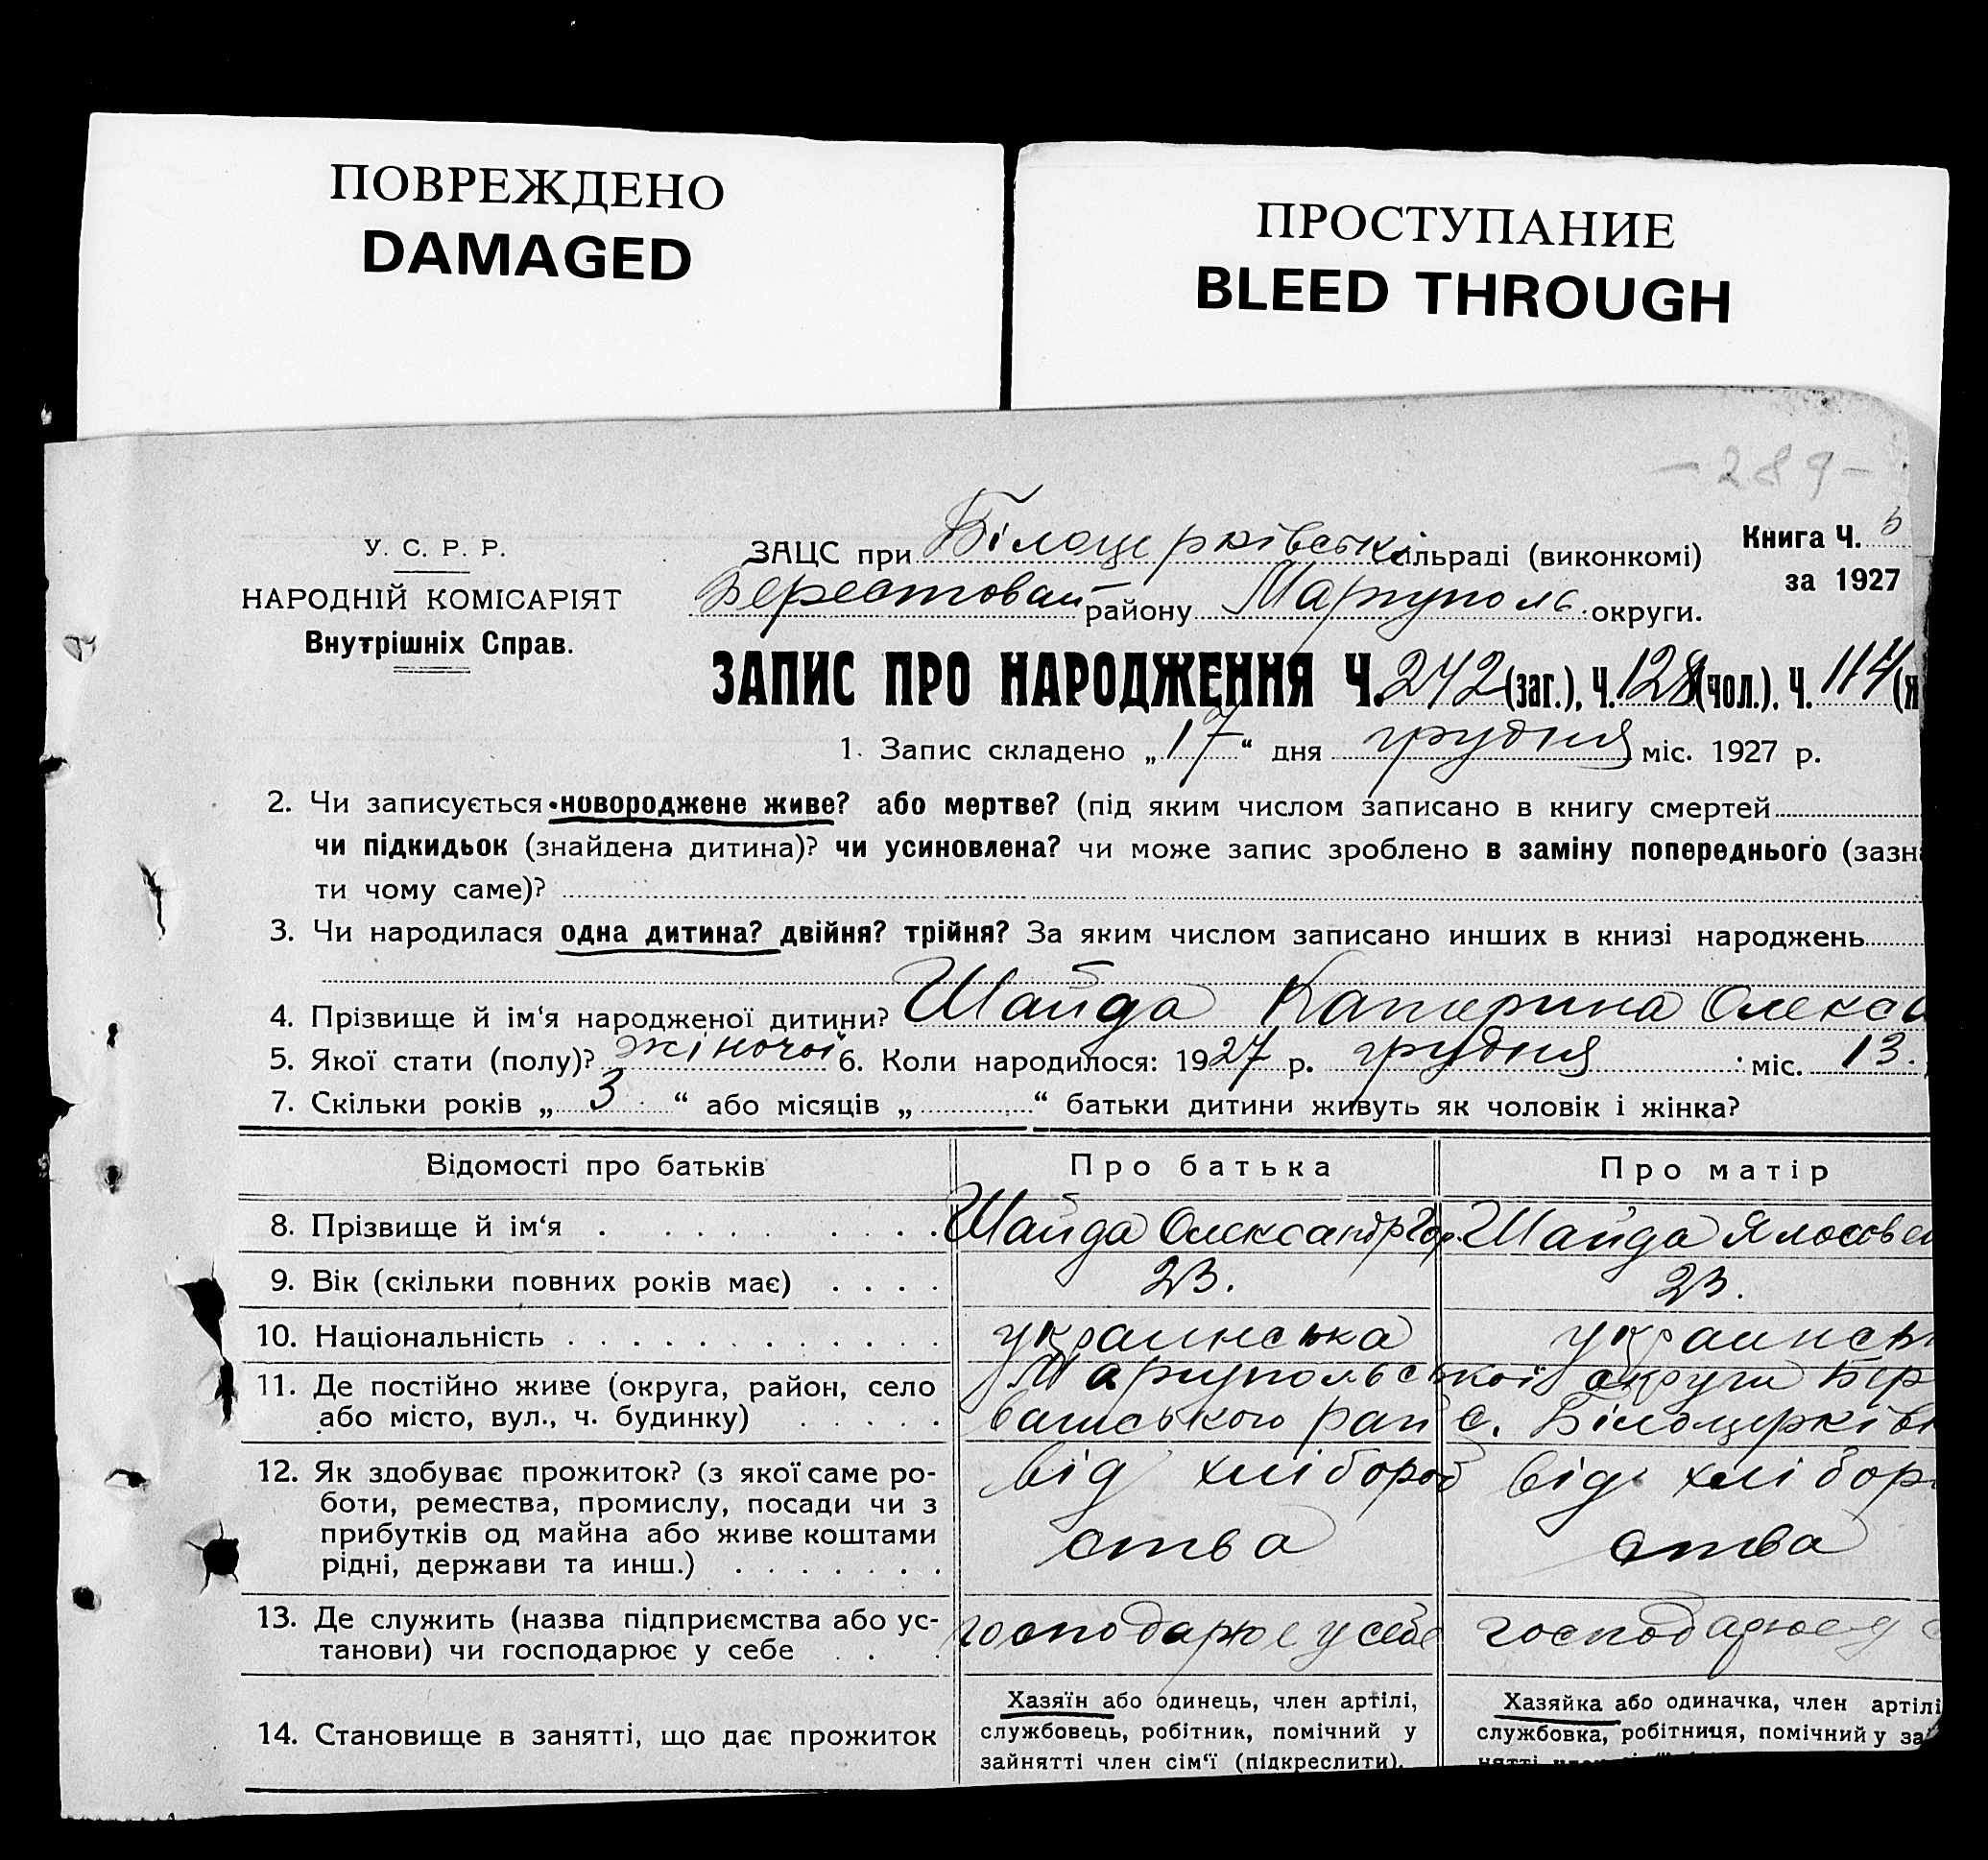 ПОВРЕЖДЕНО
DAMAGED
ПРОСТУПАНИЕ
BLEED THROUGH
-289-
У. С. Р. Р.
НАРОДНІЙ КОМІСАРІЯТ
Внутрішніх Справ.
ЗАЦС при Білоцерківськ сільраді (виконкомі)
Берестовай району Маріуполь. округи.
Книга Ч.
за 1927
ЗАПИС ПРО НАРОДЖЕННЯ Ч. 242 (заг.), Ч. 128 (чол.). Ч. 114 (
1. Запис складено „17“ дня грудня міс. 1927 р.
2. Чи записується новороджене живе? або мертве? (під яким числом записано в книгу смертей
чи підкидьок (знайдена дитина)? чи усиновлена? чи може запис зроблено в заміну попереднього (зазн
ти чому саме)?
3. Чи народилася одна дитина? двійня? трійня? За яким числом записано инших в книзі народжень
4. Прізвище й ім‘я народженої дитини? Шайда Катерина Олекса
5. Якої стати (полу)? жіночої 6. Коли народилося: 1927 р. грудня міс. 13.
7. Скільки років „3“ або місяців „ “ батьки дитини живуть як чоловік і жінка?
Відомості про батьків Про батька Про матір
8. Прізвище й ім‘я Шайда Олександр Гор. Шайда
9. Вік (скільки повних років має) 23. 23.
10. Національність украинська украинсь
11. Де постійно живе (округа, район, село Мариупольської округи Бер
або місто, вул., ч. будинку) рай с. Білоцерківк
12. Як здобуває прожиток? (з якої саме ро- від хлібороб від хлібор
боти, ремества, промислу, посади чи з
прибутків од майна або живе коштами ства ства
рідні, держави та инш.)
13. Де служить (назва підприємства або ус- господарює у себе господарює у
танови) чи господарює у себе
14. Становище в занятті, що дає прожиток
Хазяїн або одинець, член артілі,
службовець, робітник, помічний у
зайнятті член сім‘ї (підкреслити).
Хазяйка або одиначка, член артілі
службовка, робітниця, помічний у за